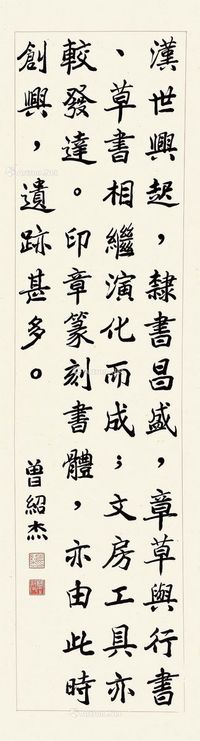 漢世興起，隸書昌盛，章草與行書
、草書相繼演化而成；文房工具亦
較發達。印章篆刻書體，亦由此時
創興，遺跡甚多。
曾紹杰